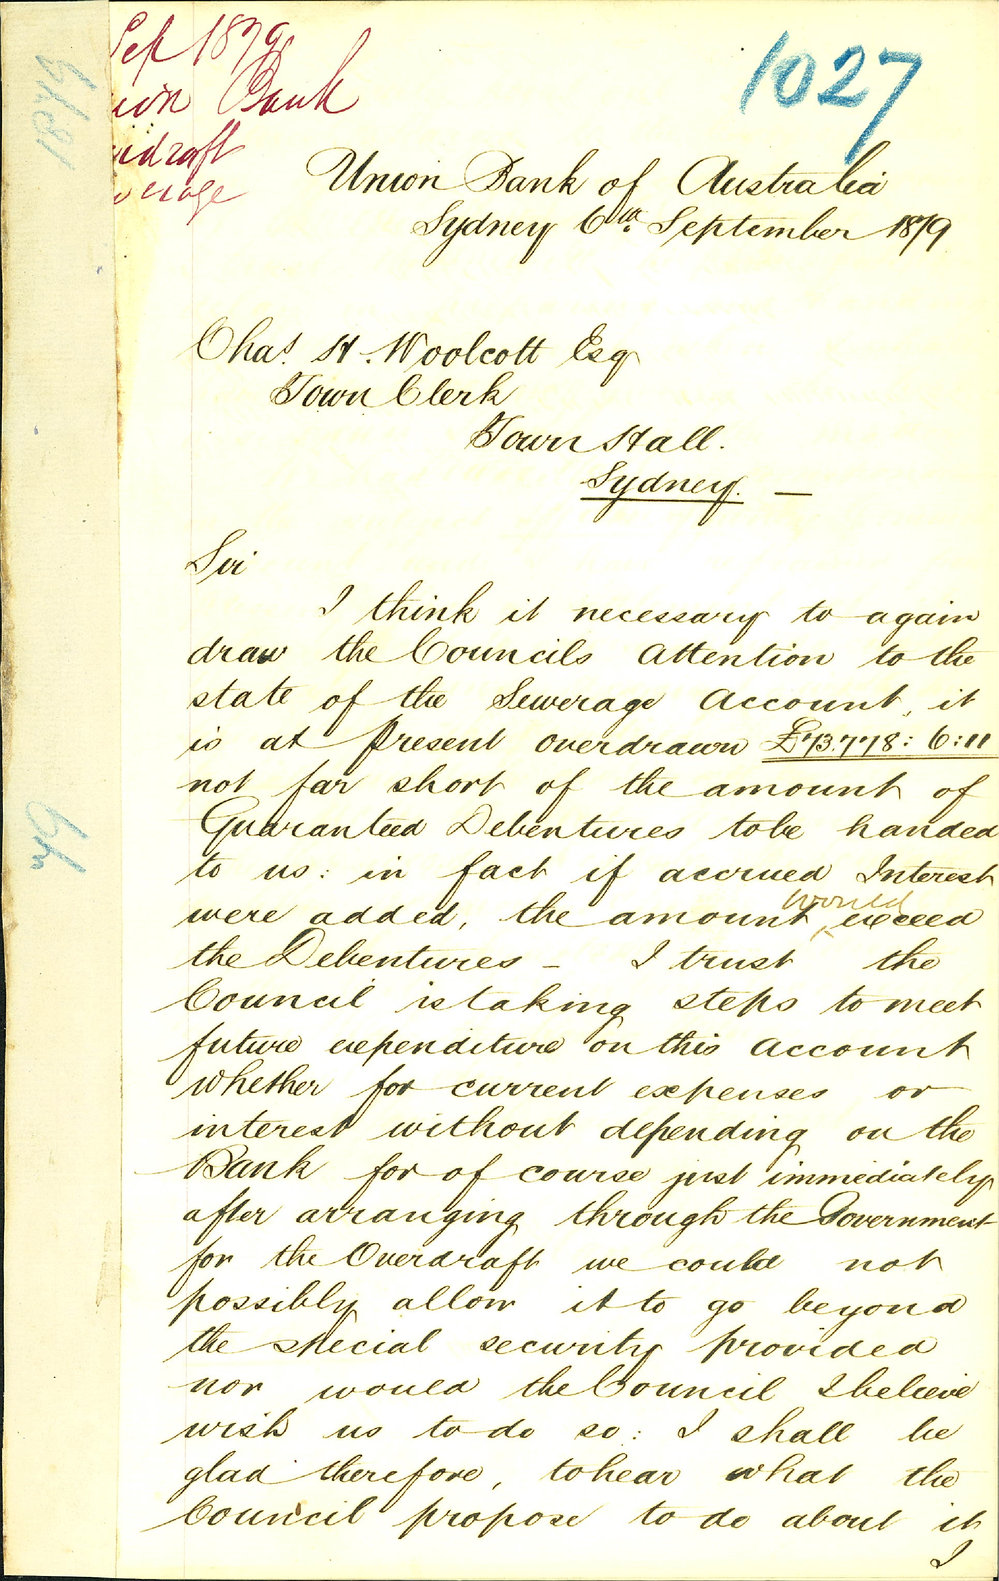 Sep 1879
ion Bank
rdraft
werage
1027
1879
Union Bank of Australia
Sydney 6th. September 1879
Chas. H. Woolcott Esq
Town Clerk
Town Hall.
Sydney. —
Sir
I think it necessary to again
draw the Councils Attention to the
state of the Sewerage Account, it
is at Present overdrawn £73.778: 6:11
not far short of the amount of
Guaranteed Debentures to be handed
to us: in fact if accrued Interest
were added, the amount would exceed
the Debentures – I trust the
Council is taking steps to meet
future expenditure on this Account
whether for current expenses or
interest without depending on the
Bank for of course just immediately
after arranging through the Government
for the Overdraft we could not
possibly allow it to go beyond
the special security provided
nor would the Council I believe
wish us to do so: I shall be
glad therefore, to hear what the
Council propose to do about it
I